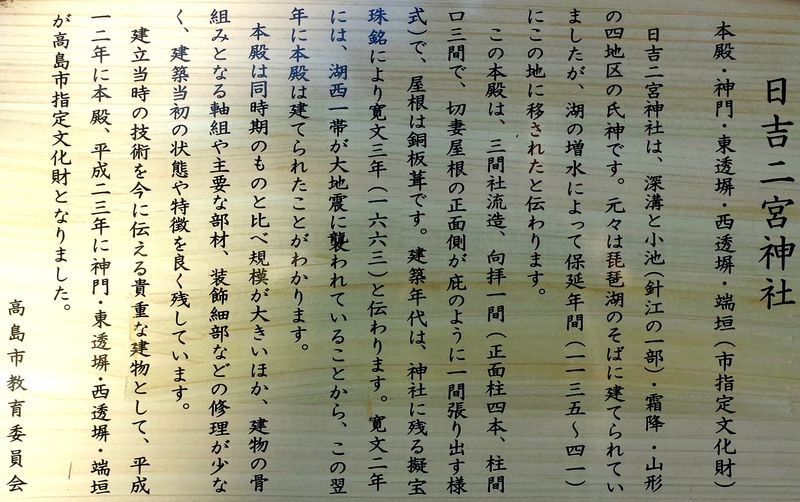 日吉二宮神社
本殿・神門・東透塀・西透塀・端垣（市指定文化財）
日吉二宮神社は、深溝と小池（針江の一部）・霜降・山形
の四地区の氏神です。元々は琵琶湖のそばに建てられてい
ましたが、湖の増水によって保延年間（一一三五～四一）
にこの地に移されたと伝わります。
この本殿は、三間社流造、向拝一間（正面柱四本、柱間
口三間で、切妻屋根の正面側が庇のように一間張り出す様
式）で、屋根は銅板葺です。建築年代は、神社に残る擬宝
珠銘により寛文三年（一六六三）と伝わります。寛文二年
には、湖西一帯が大地震に襲われていることから、この翌
年に本殿は建てられたことがわかります。
本殿は同時期のものと比べ規模が大きいほか、建物の骨
組みとなる軸組や主要な部材、装飾細部などの修理が少な
く、建築当初の状態や特徴を良く残しています。
建立当時の技術を今に伝える貴重な建物として、平成
一二年に本殿、平成二三年に神門・東透塀・西透塀・端垣
が高島市指定文化財となりました。
高島市教育委員会